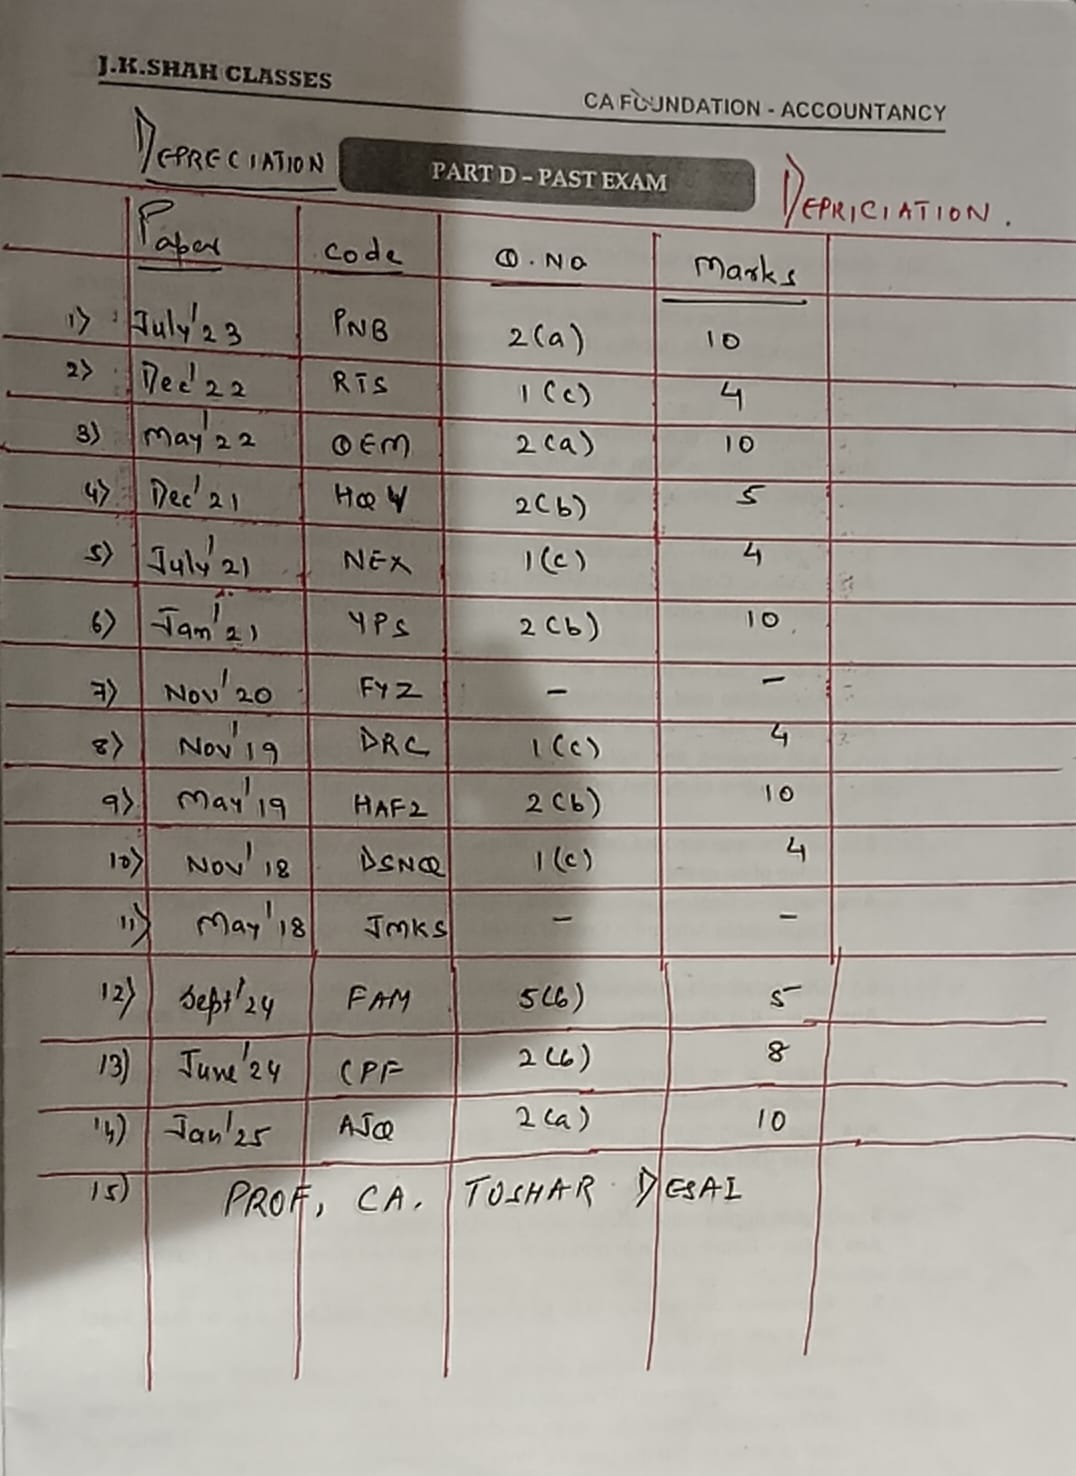 J.K.SHAH CLASSES
CA FOUNDATION - ACCOUNTANCY
DEPRECIATION PART D – PAST EXAM DEPRICIATION.
Paper Code Q.No Marks
1) July'23 PNB 2(a) 10
2) Dec'22 RTS 1(c) 4
3) May'22 OEM 2(a) 10
4) Dec'21 HQV 2(b) 5
5) July'21 NEX 1(c) 4
6) Jan'21 YPS 2(b) 10
7) Nov'20 FYZ - -
8) Nov'19 DRC 1(c) 4
9) May'19 HAF2 2(b) 10
10) Nov'18 DSNQ 1(c) 4
11) May'18 JMKS - -
12) Sept'24 FAM 5(b) 5
13) June'24 CPF 2(b) 8
14) Jan'25 AJQ 2(a) 10
15) PROF, CA. TUSHAR DESAI